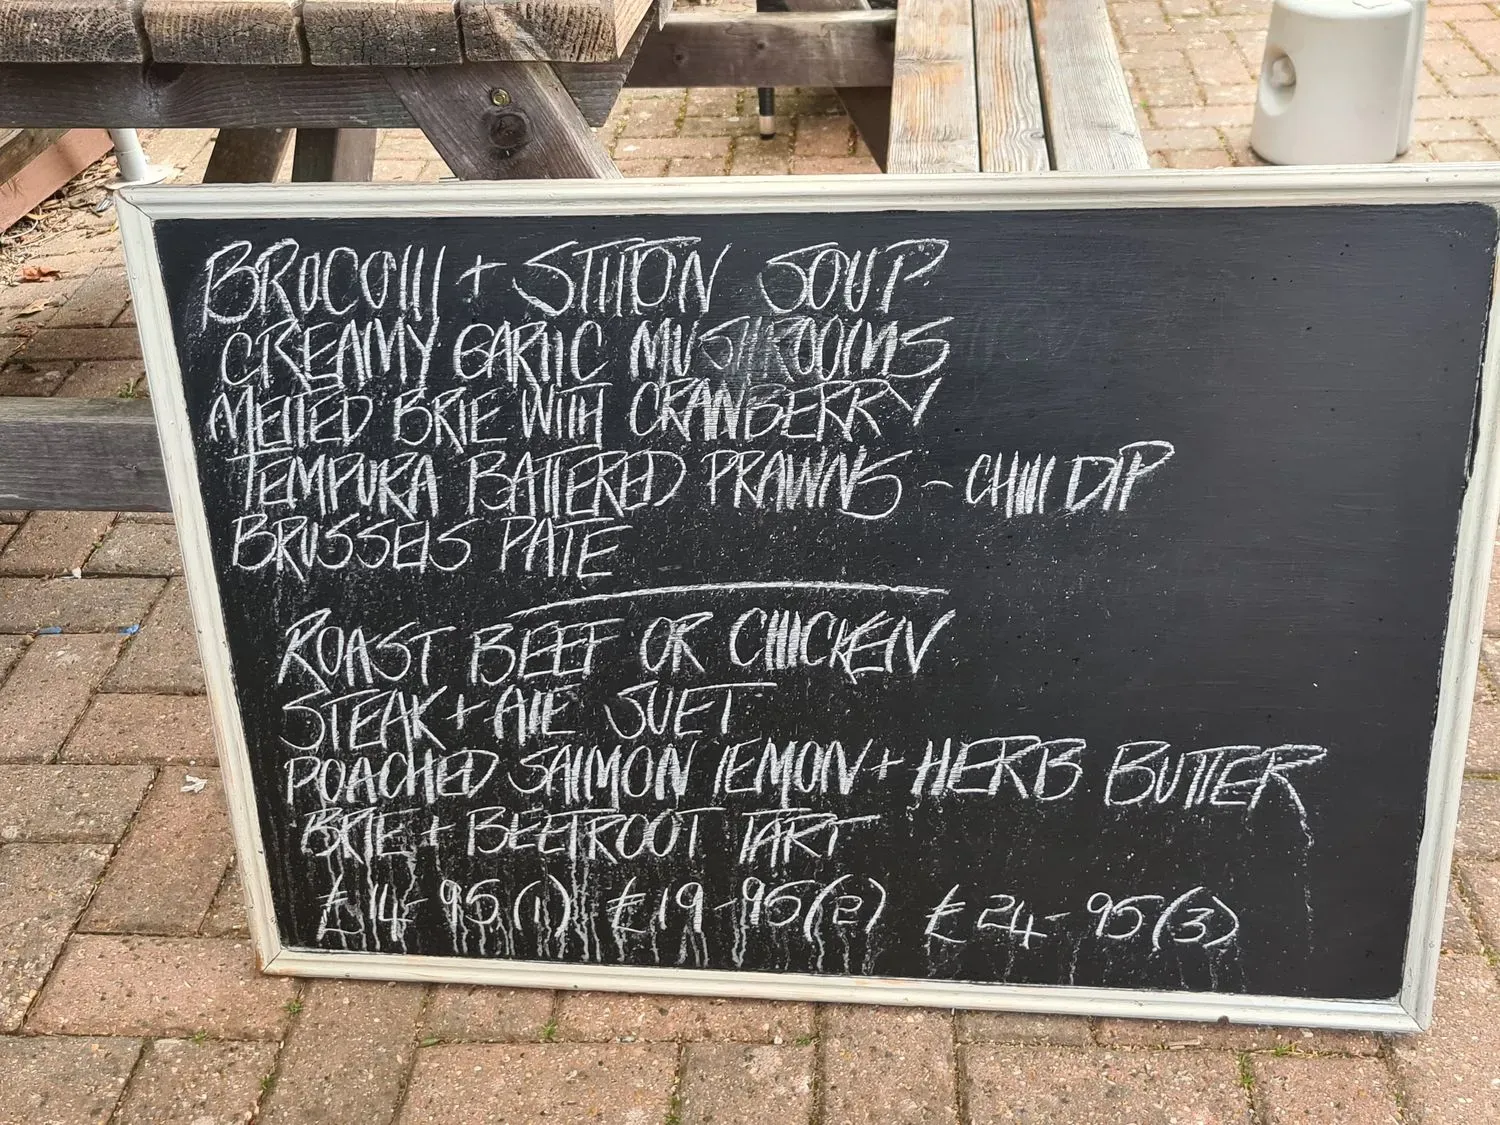 BROCOLLI + STILTON SOUP
CREAMY GARLIC MUSHROOMS
MELTED BRIE WITH CRANBERRY
TEMPURA BATTERED PRAWNS - CHILLI DIP
BRUSSELS PATE
ROAST BEEF OR CHICKEN
STEAK + ALE SUET
POACHED SALMON LEMON + HERB BUTTER
BRIE + BEETROOT TART
£14-95(1) £19-95(2) £24-95(3)